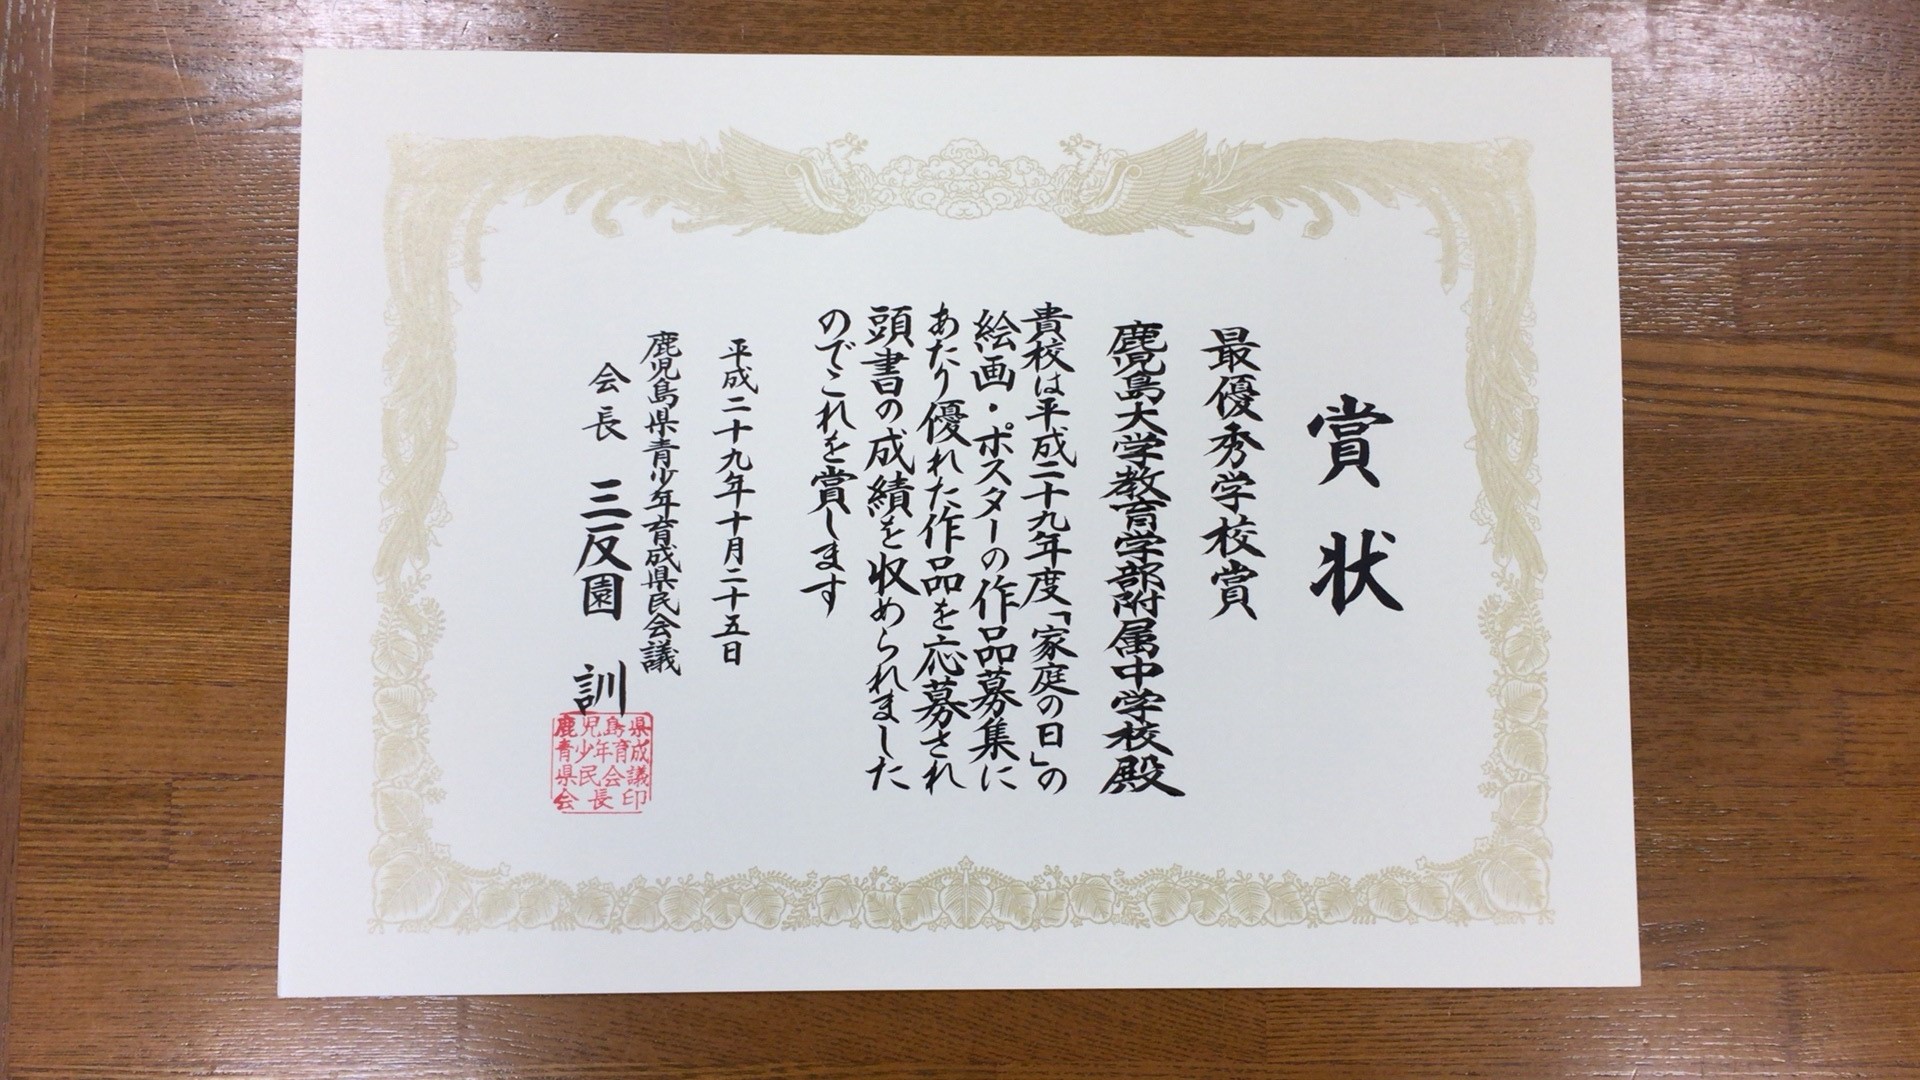 賞状
最優秀学校賞
鹿児島大学教育学部附属中学校殿
貴校は平成二十九年度「家庭の日」の
絵画・ポスターの作品募集に
あたり優れた作品を応募され
頭書の成績を収められました
のでこれを賞します
平成二十九年十月二十五日
鹿児島県青少年育成県民会議
会長 三反園 訓
鹿児島県
青少年育成
県民会議
会長印